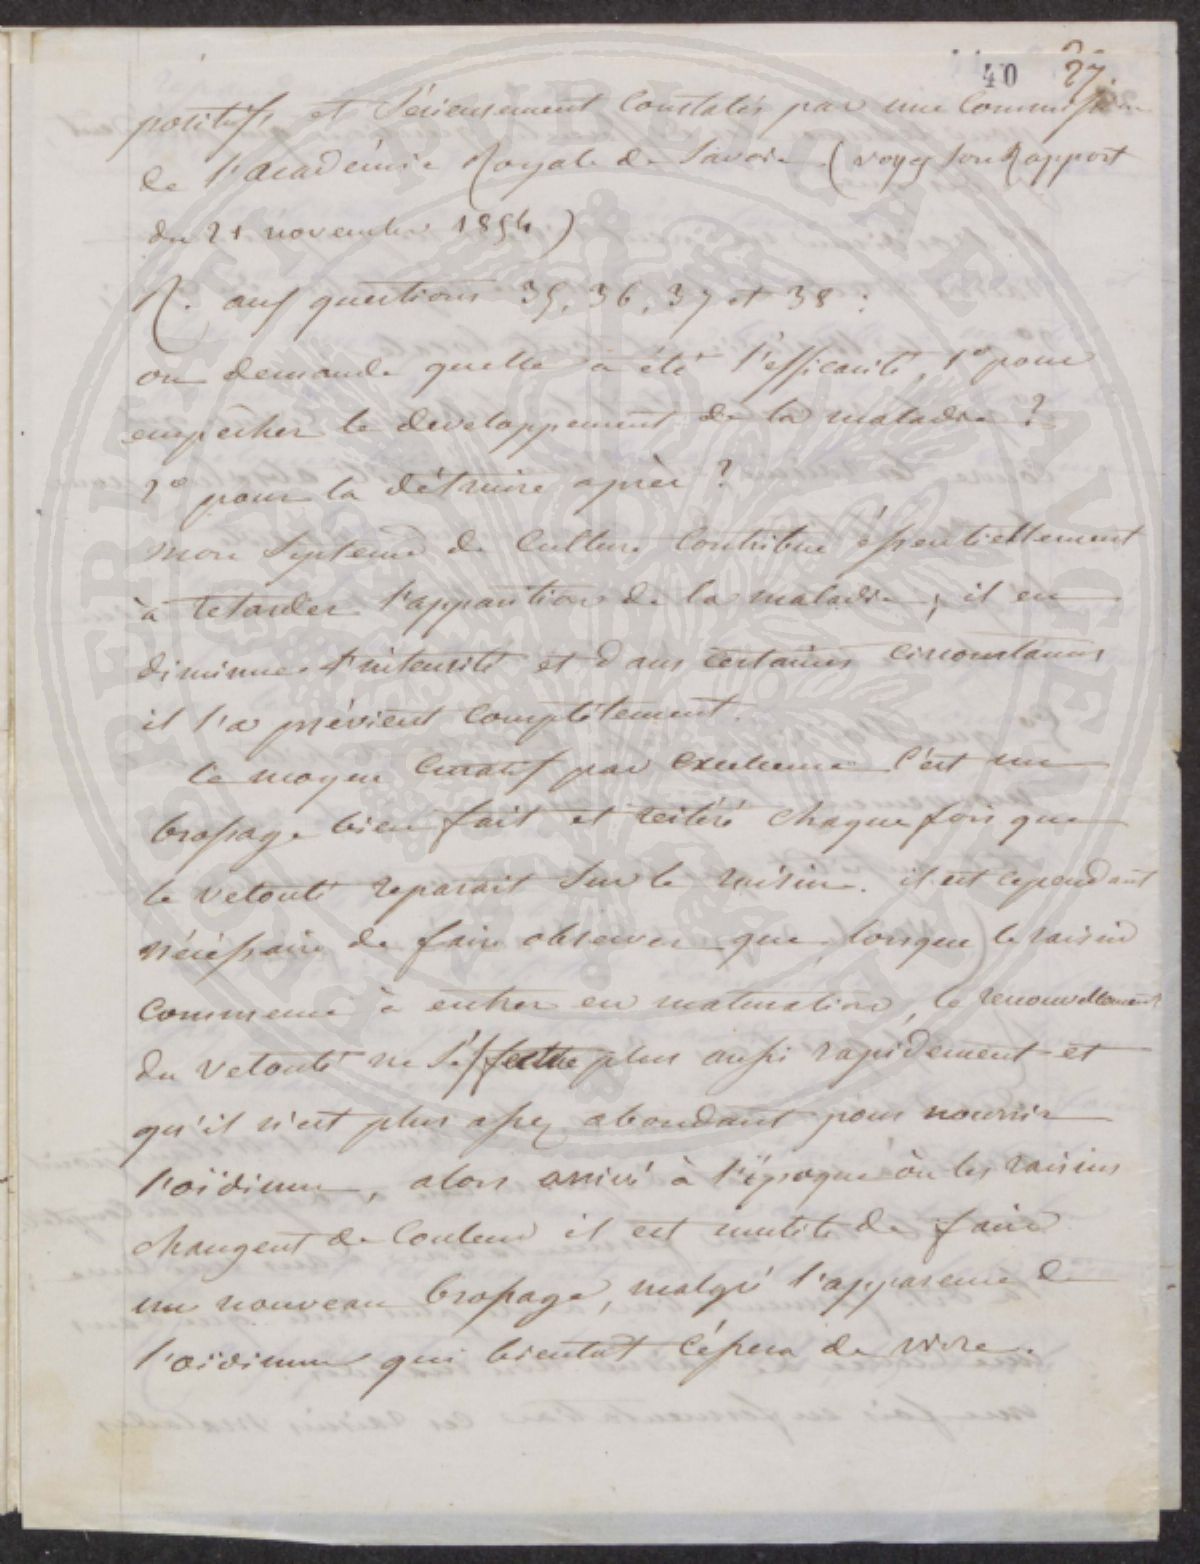 40 27.
positifs et sérieusement constatés par une Commission
de l'académie Royale de Savoie. (voyez son Rapport
du 21 novembre 1854)
R. aux questions 35, 36, 37 et 38 :
on demande quelle a été l'efficacité, 1° pour
empêcher le developpement de la maladie ?
2° pour la détruire après ?
mon systeme de culture contribue éssentiellement
à retarder l'apparition de la maladie ; il en
diminue l'intensité et dans certaines circonstances
il l'a prévient complètement.
le moyen curatif par excellence c'est un
brossage bien fait et réitéré chaque fois que
le velouté reparait sur le raisin. il est cependant
nécéssaire de faire observer que, lorsque le raisin
commence à entrer en maturation, le renouvellement
du velouté ne s'éffectue plus aussi rapidement et
qu'il n'est plus assez abondant pour nourrir
l'oïdium, alors arrivé à l'époque où les raisins
changent de couleur il est inutile de faire
un nouveau brossage, malgré l'apparence de
l'oïdium qui bientot céssera de vivre.
PERPETUI PVBLICAE AVGENDAE